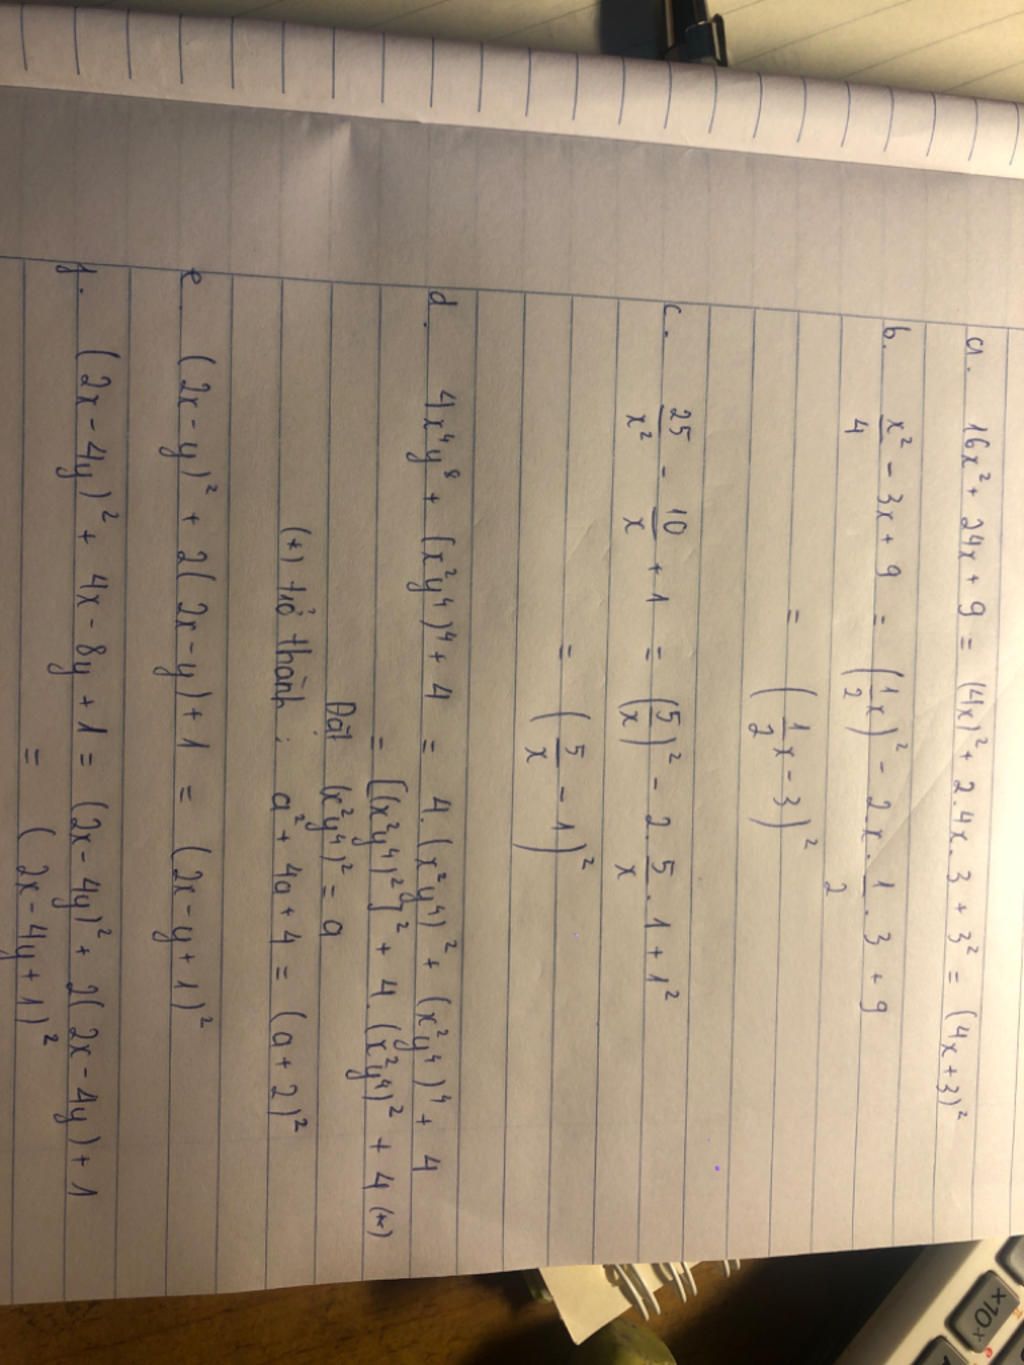 a. 16x² + 24x + 9 = (4x)² + 2.4x.3 + 3² = (4x+3)²
b. x²/4 - 3x + 9 = (1/2 x)² - 2.x.1/2.3 + 9
= (1/2 x - 3)²
c. 25/x² - 10/x + 1 = (5/x)² - 2.5/x.1 + 1²
= (5/x - 1)²
d. 4x⁴y⁸ + (x²y⁴)⁴ + 4 = 4.(x²y⁴)² + (x²y⁴)⁴ + 4
= [(x²y⁴)²]² + 4.(x²y⁴)² + 4 (*)
Đặt (x²y⁴)² = a
(*) trở thành : a² + 4a + 4 = (a + 2)²
e. (2x-y)² + 2(2x-y) + 1 = (2x-y+1)²
f. (2x-4y)² + 4x - 8y + 1 = (2x-4y)² + 2(2x-4y) + 1
= (2x-4y+1)²
×10ˣ